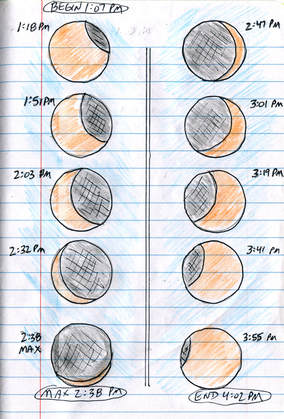 BEGIN 1:07 PM
1:18 PM
1:51 PM
2:03 PM
2:32 PM
2:38
MAX
MAX 2:38 PM
2:47 PM
3:01 PM
3:19 PM
3:41 PM
3:55 PM
END 4:02 PM